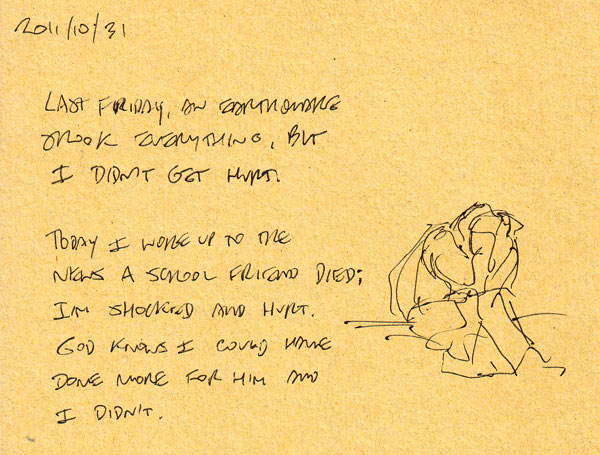 2011/10/31
LAST FRIDAY, AN EARTHQUAKE
SHOOK EVERYTHING, BUT
I DIDN'T GET HURT.
TODAY I WOKE UP TO THE
NEWS A SCHOOL FRIEND DIED;
I'M SHOCKED AND HURT.
GOD KNOWS I COULD HAVE
DONE MORE FOR HIM AND
I DIDN'T.